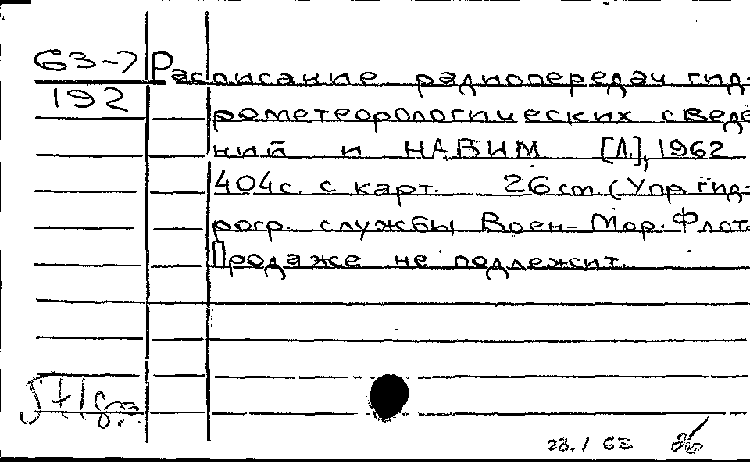 63-7 Расписание радиопередач гид-
192
рометеорологических сведе
ний и НАВИМ [Л.], 1962
404с. с карт. 26 cm. (Упр. гид-
рогр. службы Воен-Мор. Флот
Продаже не подлежит.
28.1 63